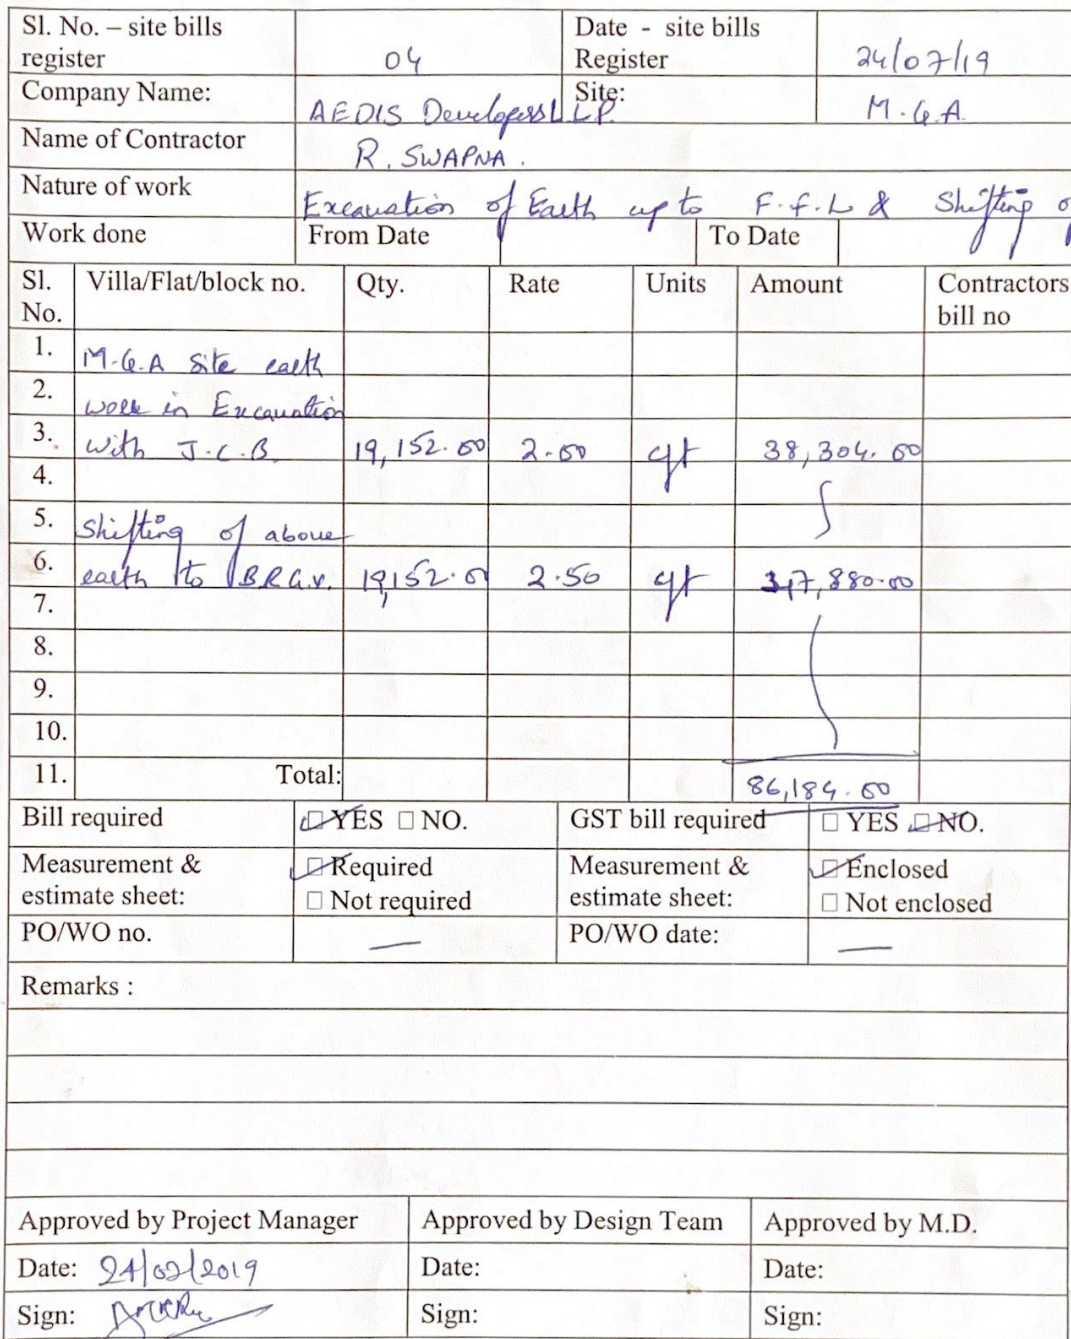 Sl. No. – site bills register 04 Date - site bills Register 24/07/19
Company Name: AEDIS Developers LLP. Site: M.G.A.
Name of Contractor R. SWAPNA.
Nature of work Excavation of Earth up to F.F.L & Shifting of
Work done From Date To Date
Sl. No. Villa/Flat/block no. Qty. Rate Units Amount Contractors bill no
1. M.G.A Site earth
2. work in Excavation
3. with J.C.B 19,152.00 2.00 cft 38,304.00
4.
5. Shifting of above
6. earth to B.R.G.V. 19,152.0 2.50 cft 47,880.00
7.
8.
9.
10.
11. Total: 86,184.00
Bill required ☑ YES ☐ NO. GST bill required ☐ YES ☑ NO.
Measurement & estimate sheet: ☑ Required ☐ Not required Measurement & estimate sheet: ☑ Enclosed ☐ Not enclosed
PO/WO no. — PO/WO date: —
Remarks :
Approved by Project Manager Approved by Design Team Approved by M.D.
Date: 24/07/2019 Date: Date:
Sign: Sign: Sign: